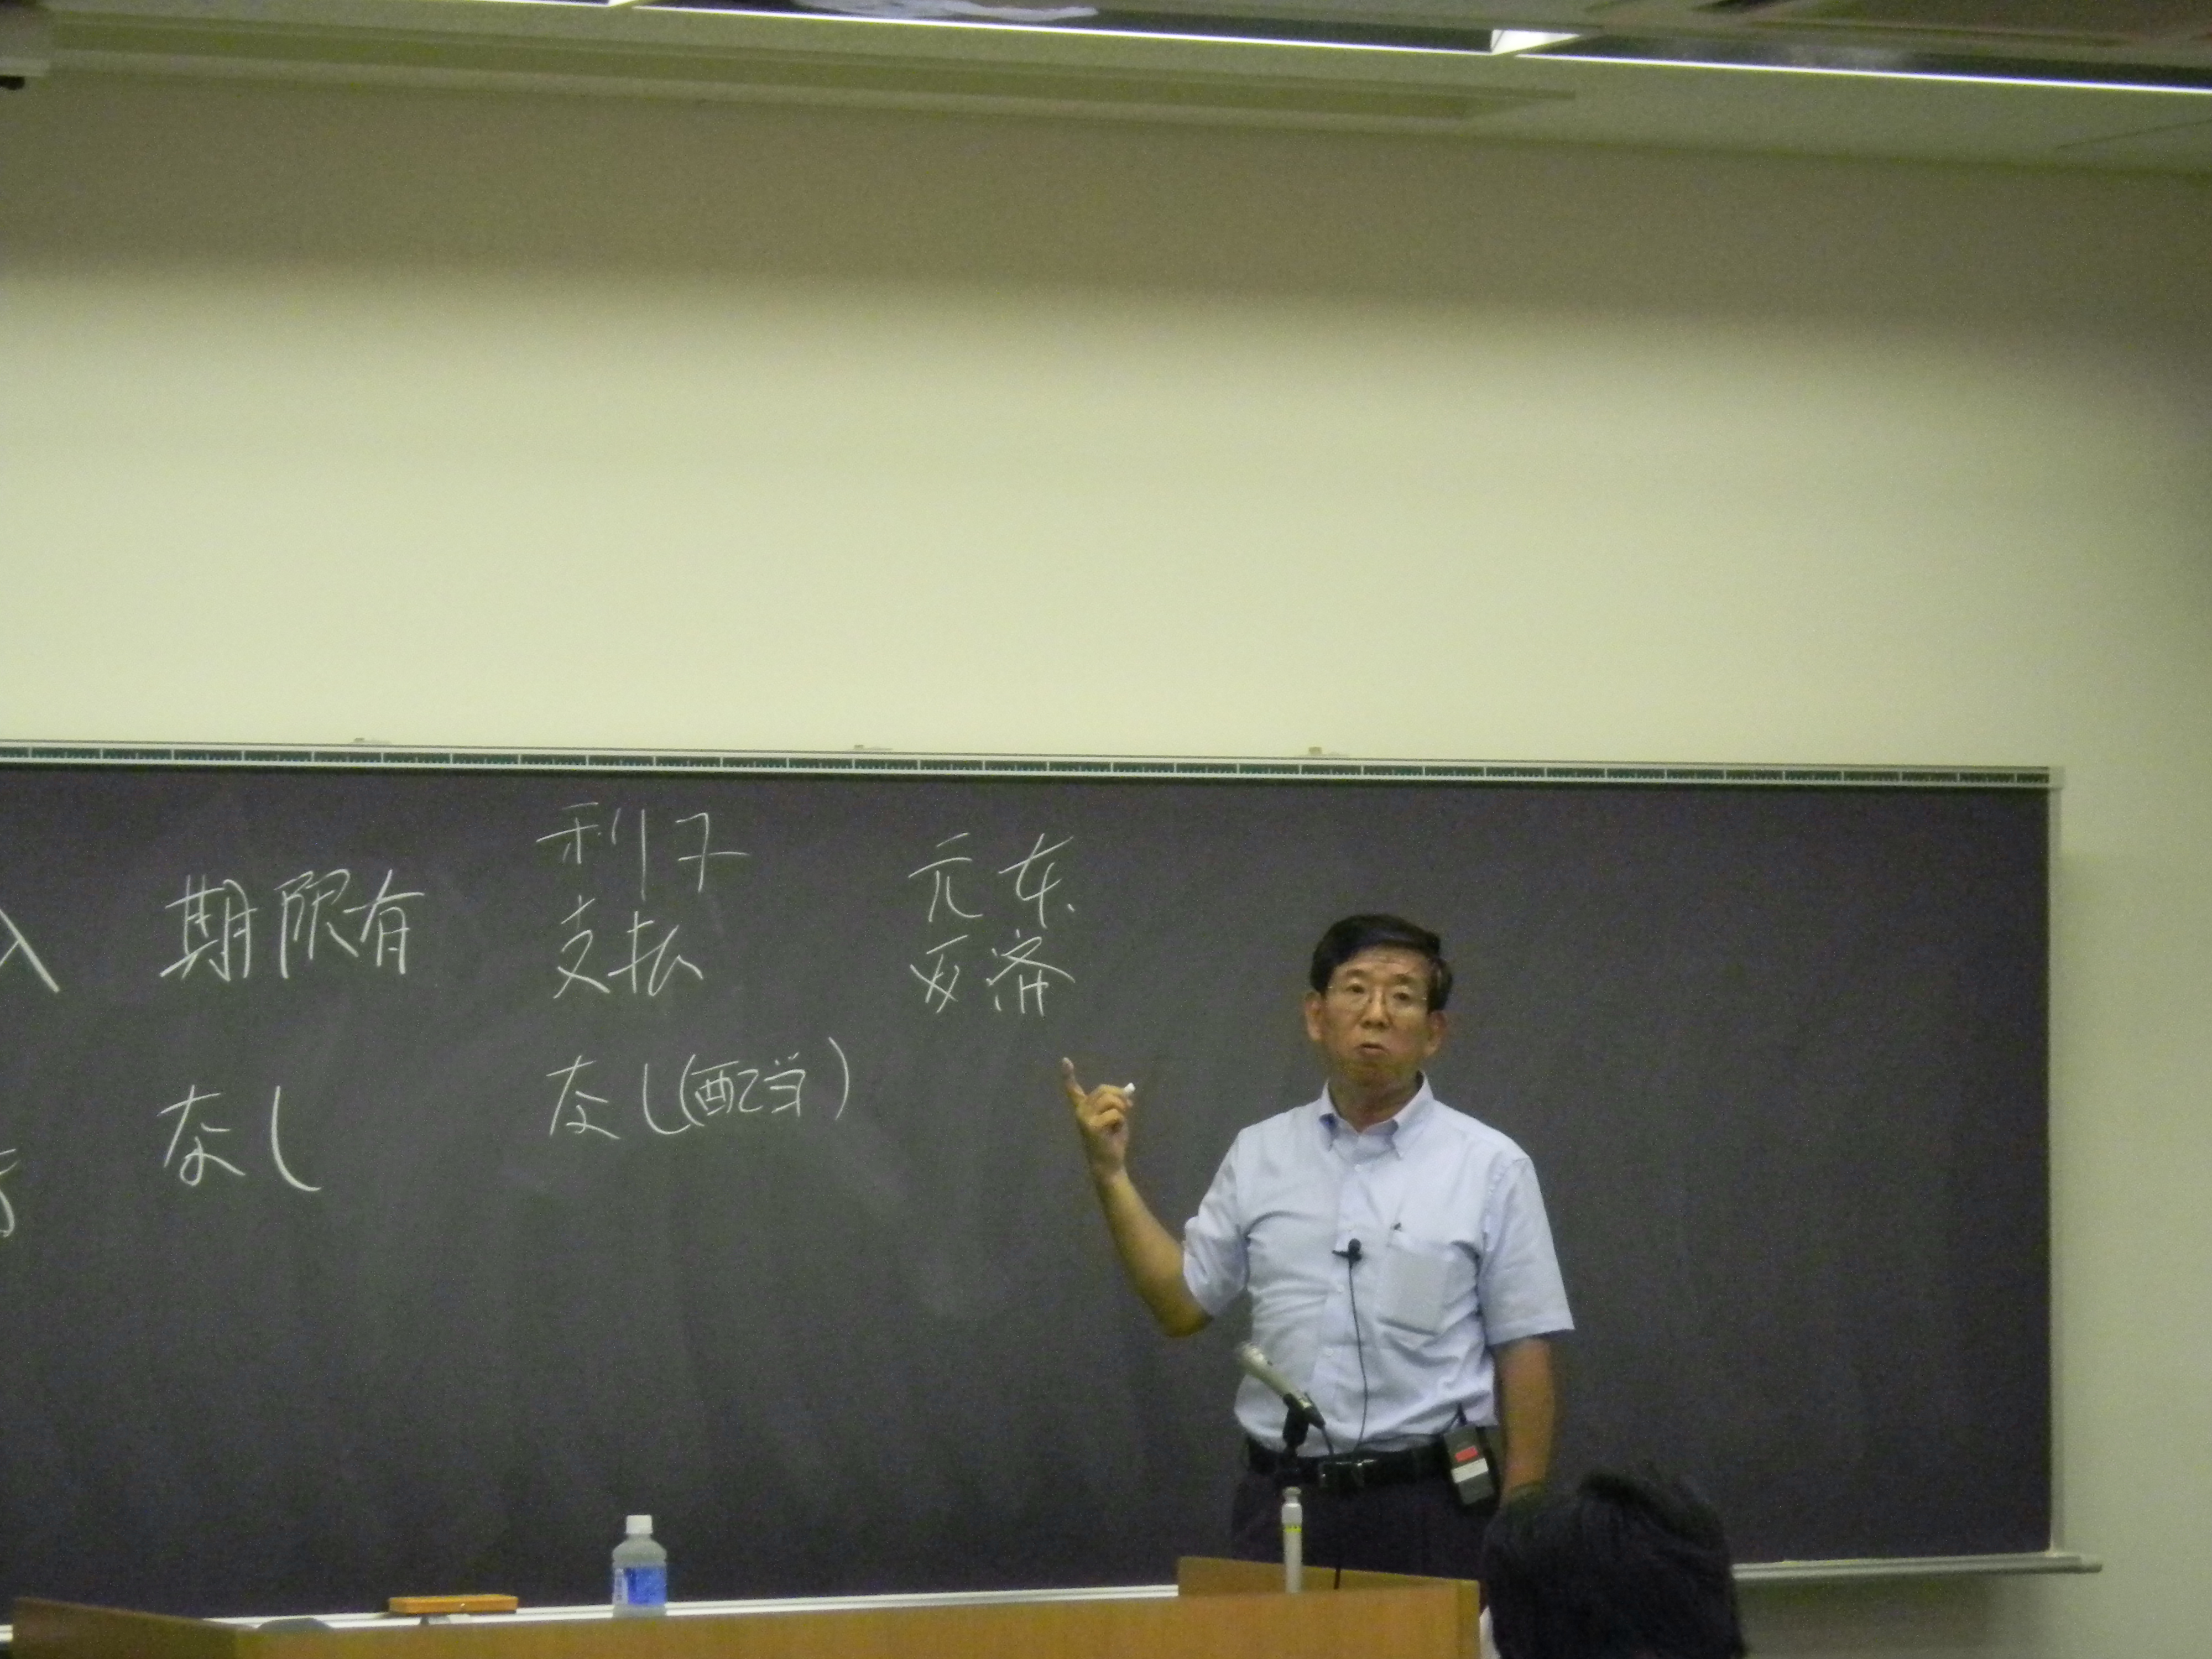 入 期限有 利子
支払 元本
返済
なし なし(配当)